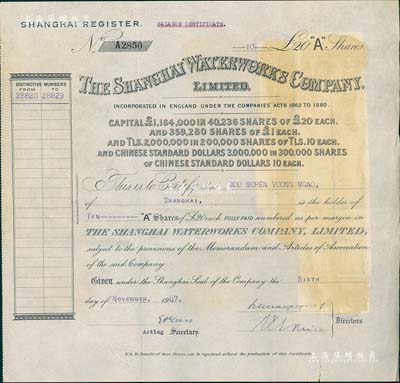 SHANGHAI REGISTER.
BALANCE CERTIFICATE.
No. A2850
10 £20 "A" Shares
DISTINCTIVE NUMBERS
FROM TO
28820 28829
THE SHANGHAI WATERWORKS COMPANY,
LIMITED.
INCORPORATED IN ENGLAND UNDER THE COMPANIES' ACTS 1862 TO 1880.
CAPITAL £1,164,000 IN 40,236 SHARES OF £20 EACH.
AND 359,280 SHARES OF £1 EACH.
AND TLS. 2,000,000 IN 200,000 SHARES OF TLS. 10 EACH.
AND CHINESE STANDARD DOLLARS 3,000,000 IN 300,000 SHARES
OF CHINESE STANDARD DOLLARS 10 EACH.
This is to Certify that WOO SCHEN VOONG NGAO,
of SHANGHAI, is the holder of
TEN "A" Shares of £20 each FULLY PAID numbered as per margin in
THE SHANGHAI WATERWORKS COMPANY, LIMITED,
subject to the provisions of the Memorandum and Articles of Association
of the said Company
Given under the Shanghai Seal of the Company the SIXTH
day of NOVEMBER, 1947.
Acting Secretary.
Directors
N.B. No Transfer of these Shares can be registered without the production of this Certificate.